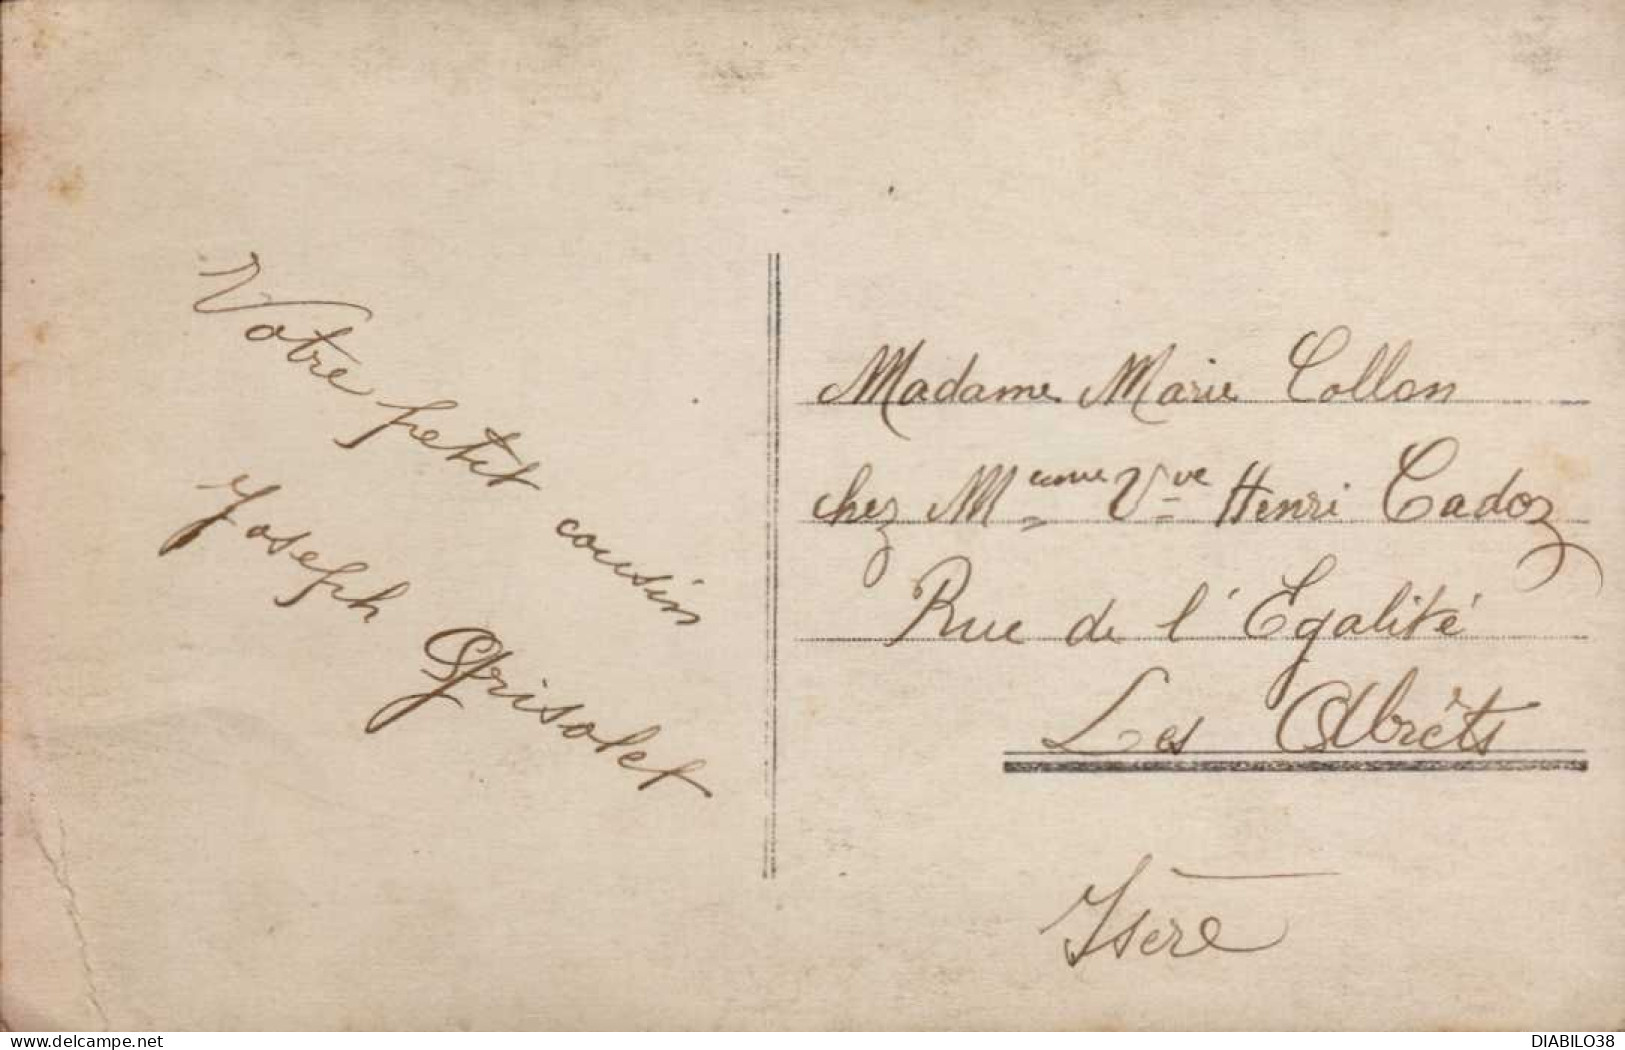 Votre petit cousin
Joseph Grisolet
Madame Marie Collon
chez Meme Vve Henri Cadoz
Rue de l'Egalité
Les Abrêts
Isère
delcampe.net
DIABILO38